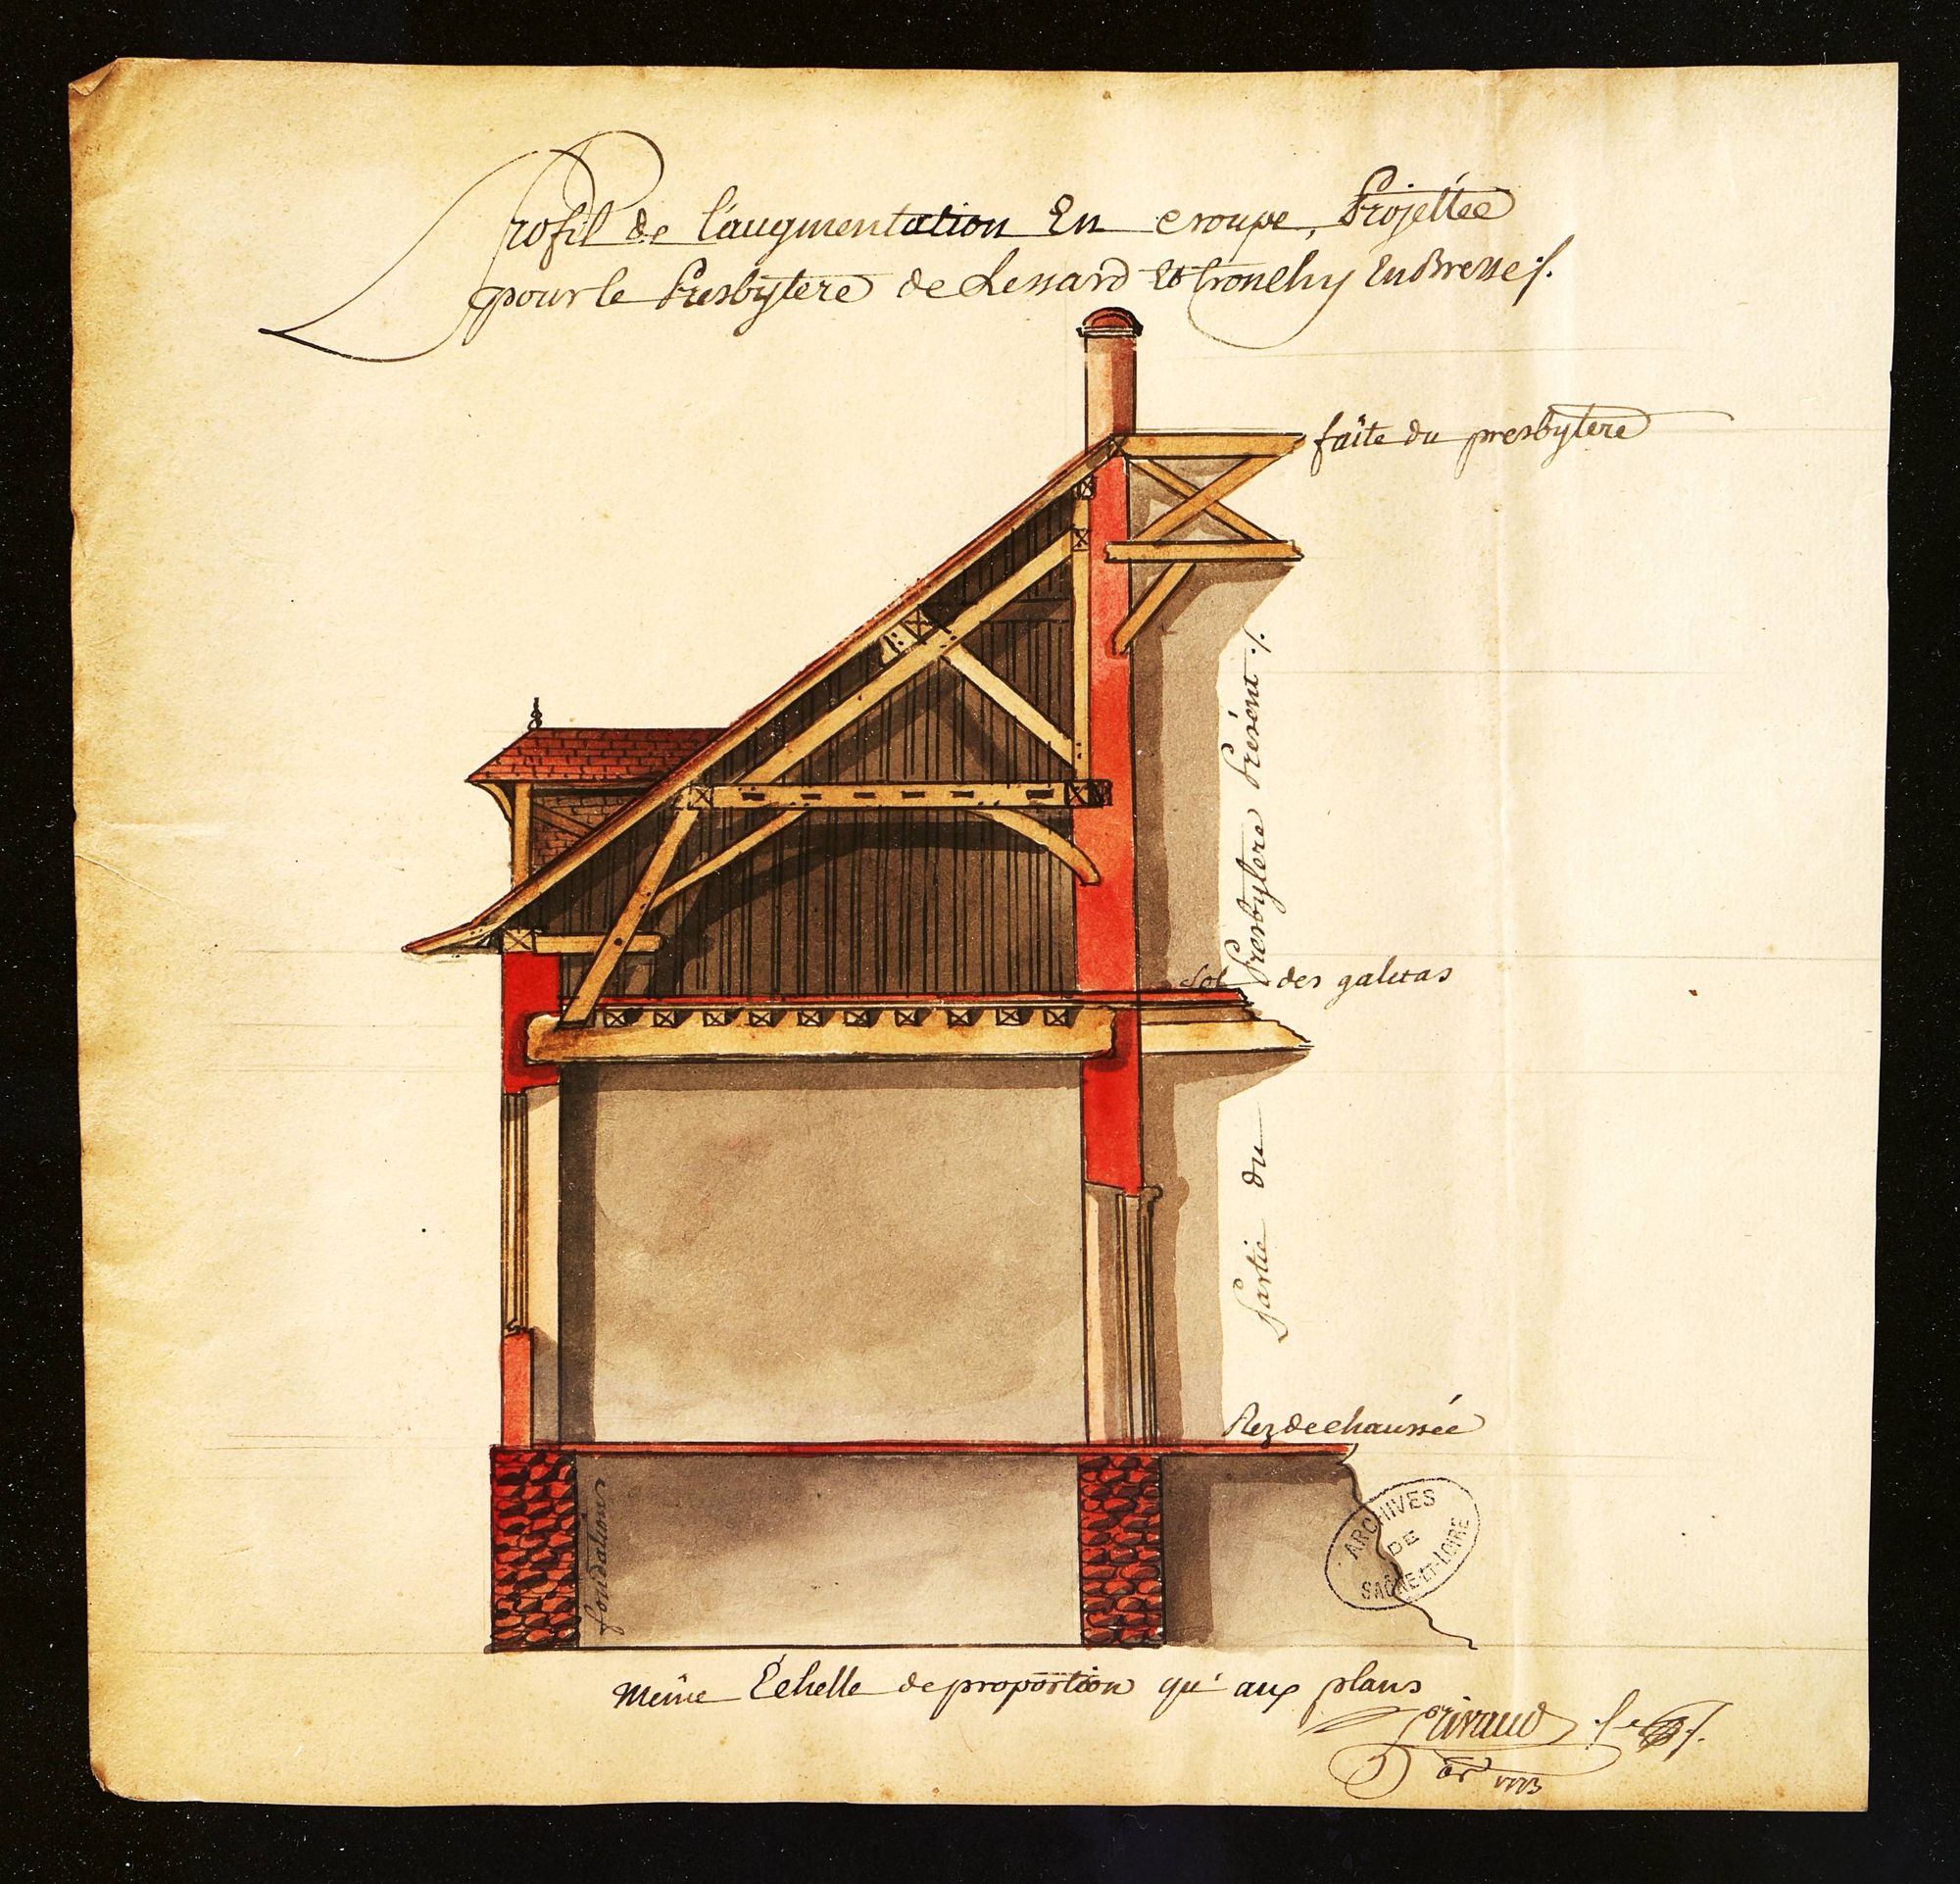 Profil de l'augmentation En croupe, Projettée
pour le Presbytere de Lessard Et Tronchy En Bresse ./.
faîte du presbytere
Partie du Presbytere Présent ./.
Sol des galetas
Rez de chaussée
fondations
ARCHIVES
DE
SAÔNE-ET-LOIRE
Même Echelle de proportion qu'aux plans
Rivaud